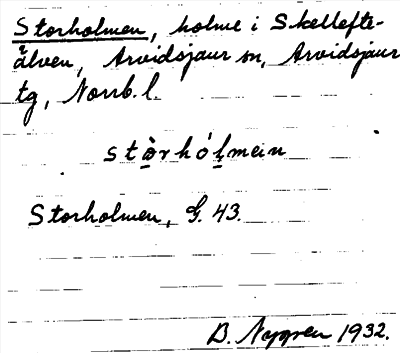 Storholmen, holme i Skellefte-
älven, Arvidsjaur sn, Arvidsjaur
tg, Norrb. l.
stòrhólmein
Storholmen, G. 43.
B. Nygren 1932.